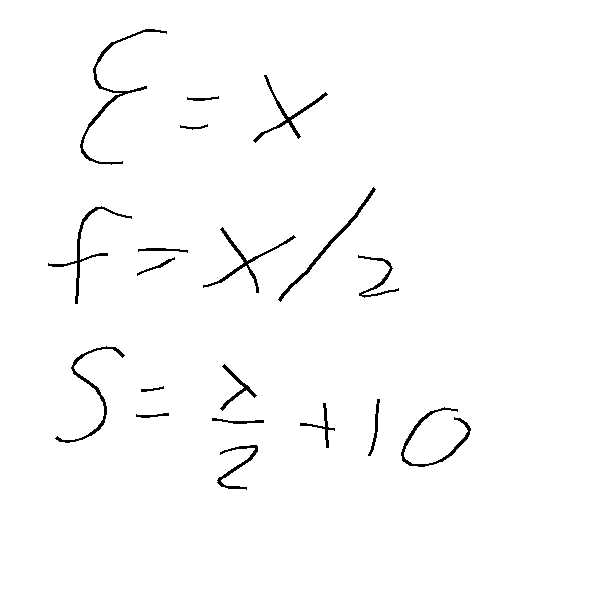 ε = x
f = x/2
S = x/2 + 10